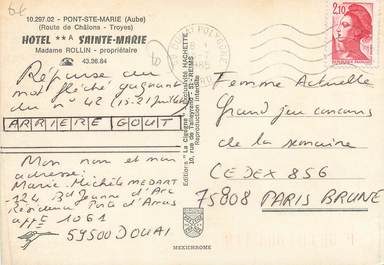 10.297.02 - PONT-STE-MARIE (Aube)
(Route de Châlons - Troyes)
HOTEL ★★A SAINTE-MARIE
Madame ROLLIN - propriétaire
☎ 43.06.84
Réponse au
mot fléché gagnant
du n° 42 (15-21 Juillet)
ARRIERE GOUT
Mon nom et mon
adresse:
Marie-Michèle MEDART
324 Bd Jeanne d'Arc
Résidence Porte d'Arras
appt 1061
59500 DOUAI
Edition "La Cigogne" - Exclusivité HACHETTE
10, rue de Talleyrand - 51-REIMS
Reproduction interdite
MEXICHROME
2,10
Femme Actuelle
Grand jeu concours
de la semaine
CEDEX 856
75808 PARIS BRUNE